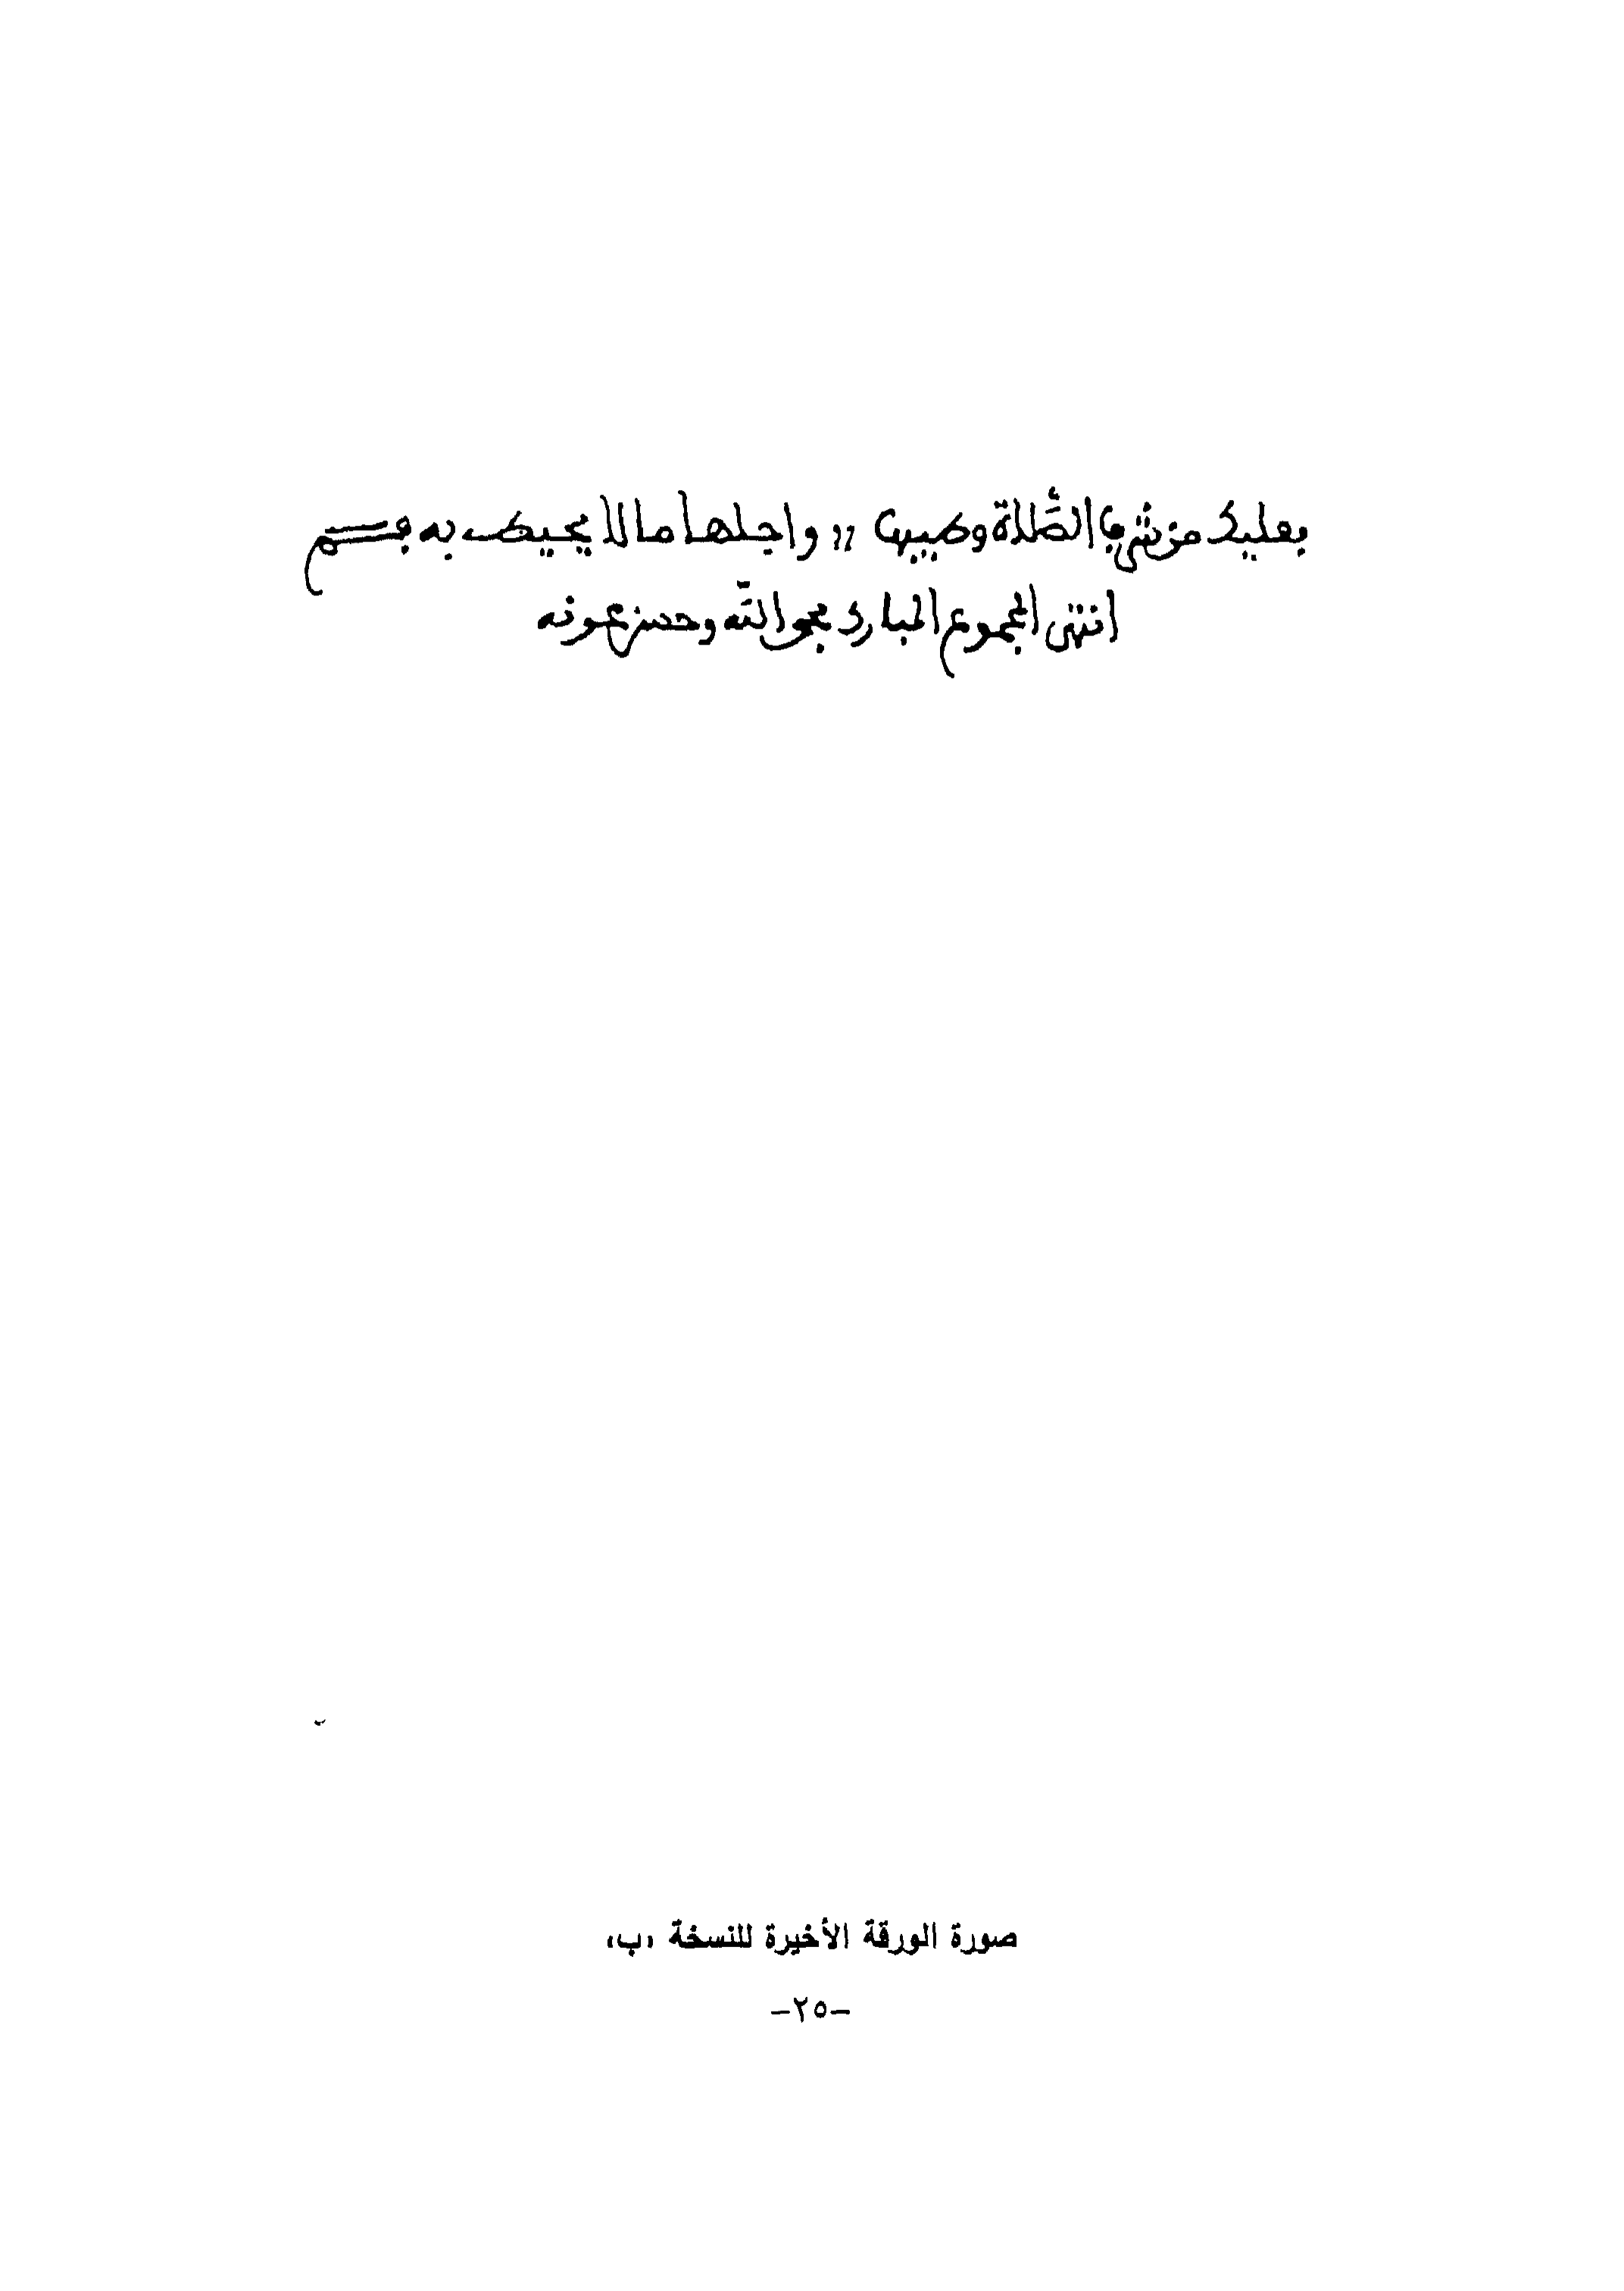 فعليك من شريف الصلاة وطيبها ،، واجلها ما لا يحيط به فم
انتهى المجموع المبارك بحول الله وحسن عونه
صورة الورقة الأخيرة للنسخة «ب»
-٢٥-